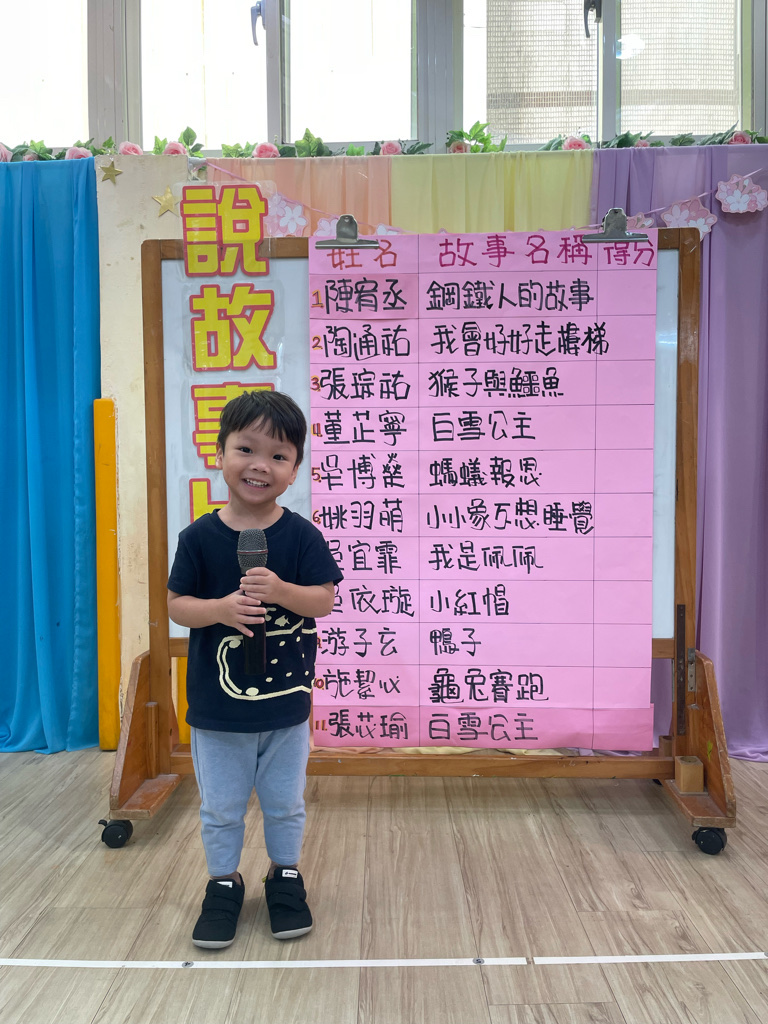 說故事
姓名 故事名稱 得分
1. 陳宥丞 鋼鐵人的故事
2. 陶通祐 我會好好走樓梯
3. 張琮祐 猴子與鱷魚
4. 董芷寧 白雪公主
5. 吳博榮 螞蟻報恩
6. 姚羽萌 小小象不想睡覺
宜霏 我是佩佩
依璇 小紅帽
游子玄 鴨子
10. 施絜心 龜兔賽跑
11. 張芯瑜 白雪公主